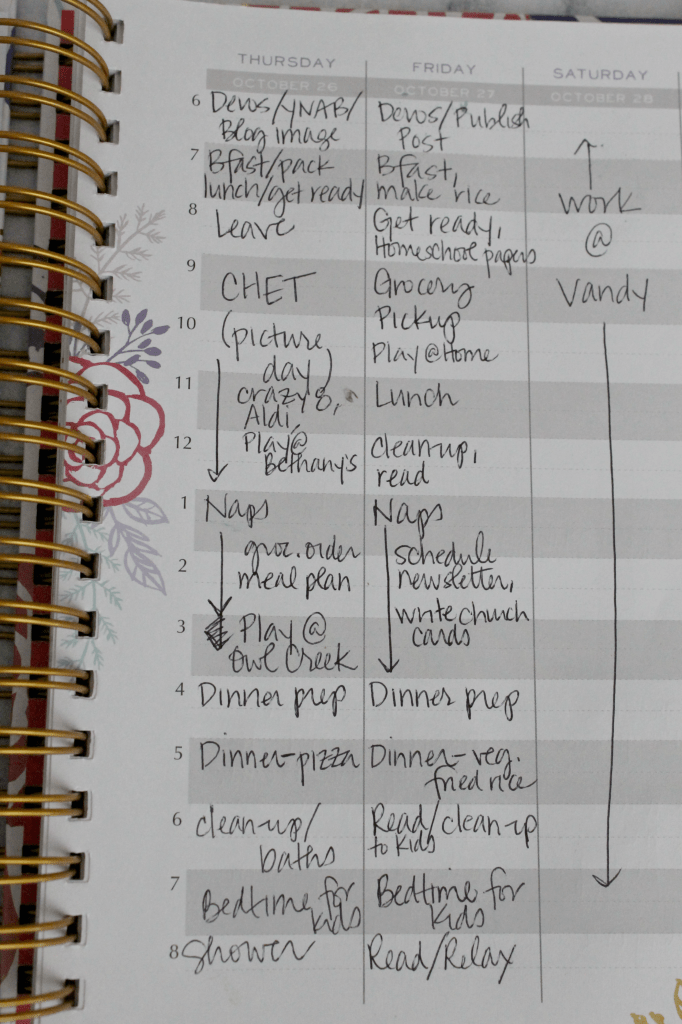 THURSDAY
OCTOBER 26
6 Devos/YNAB/
Blog image
7 Bfast/pack
lunch/get ready
8 Leave
9 CHET
10 (picture
day)
11 crazy 8,
Aldi,
12 Play@
Bethany's
1 Naps
groc. order
2 meal plan
3 Play @
Owl Creek
4 Dinner prep
5 Dinner-pizza
6 clean-up/
baths
7 Bedtime for
kids
8 Shower
FRIDAY
OCTOBER 27
Devos/Publish
Post
Bfast,
make rice
Get ready,
Homeschool papers
Grocery
Pickup
Play @ Home
Lunch
clean-up,
read
Naps
schedule
newsletter,
write church
cards
Dinner prep
Dinner-veg.
fried rice
Read/clean-up
to kids
Bedtime for
kids
Read/Relax
SATURDAY
OCTOBER 28
work
@
Vandy